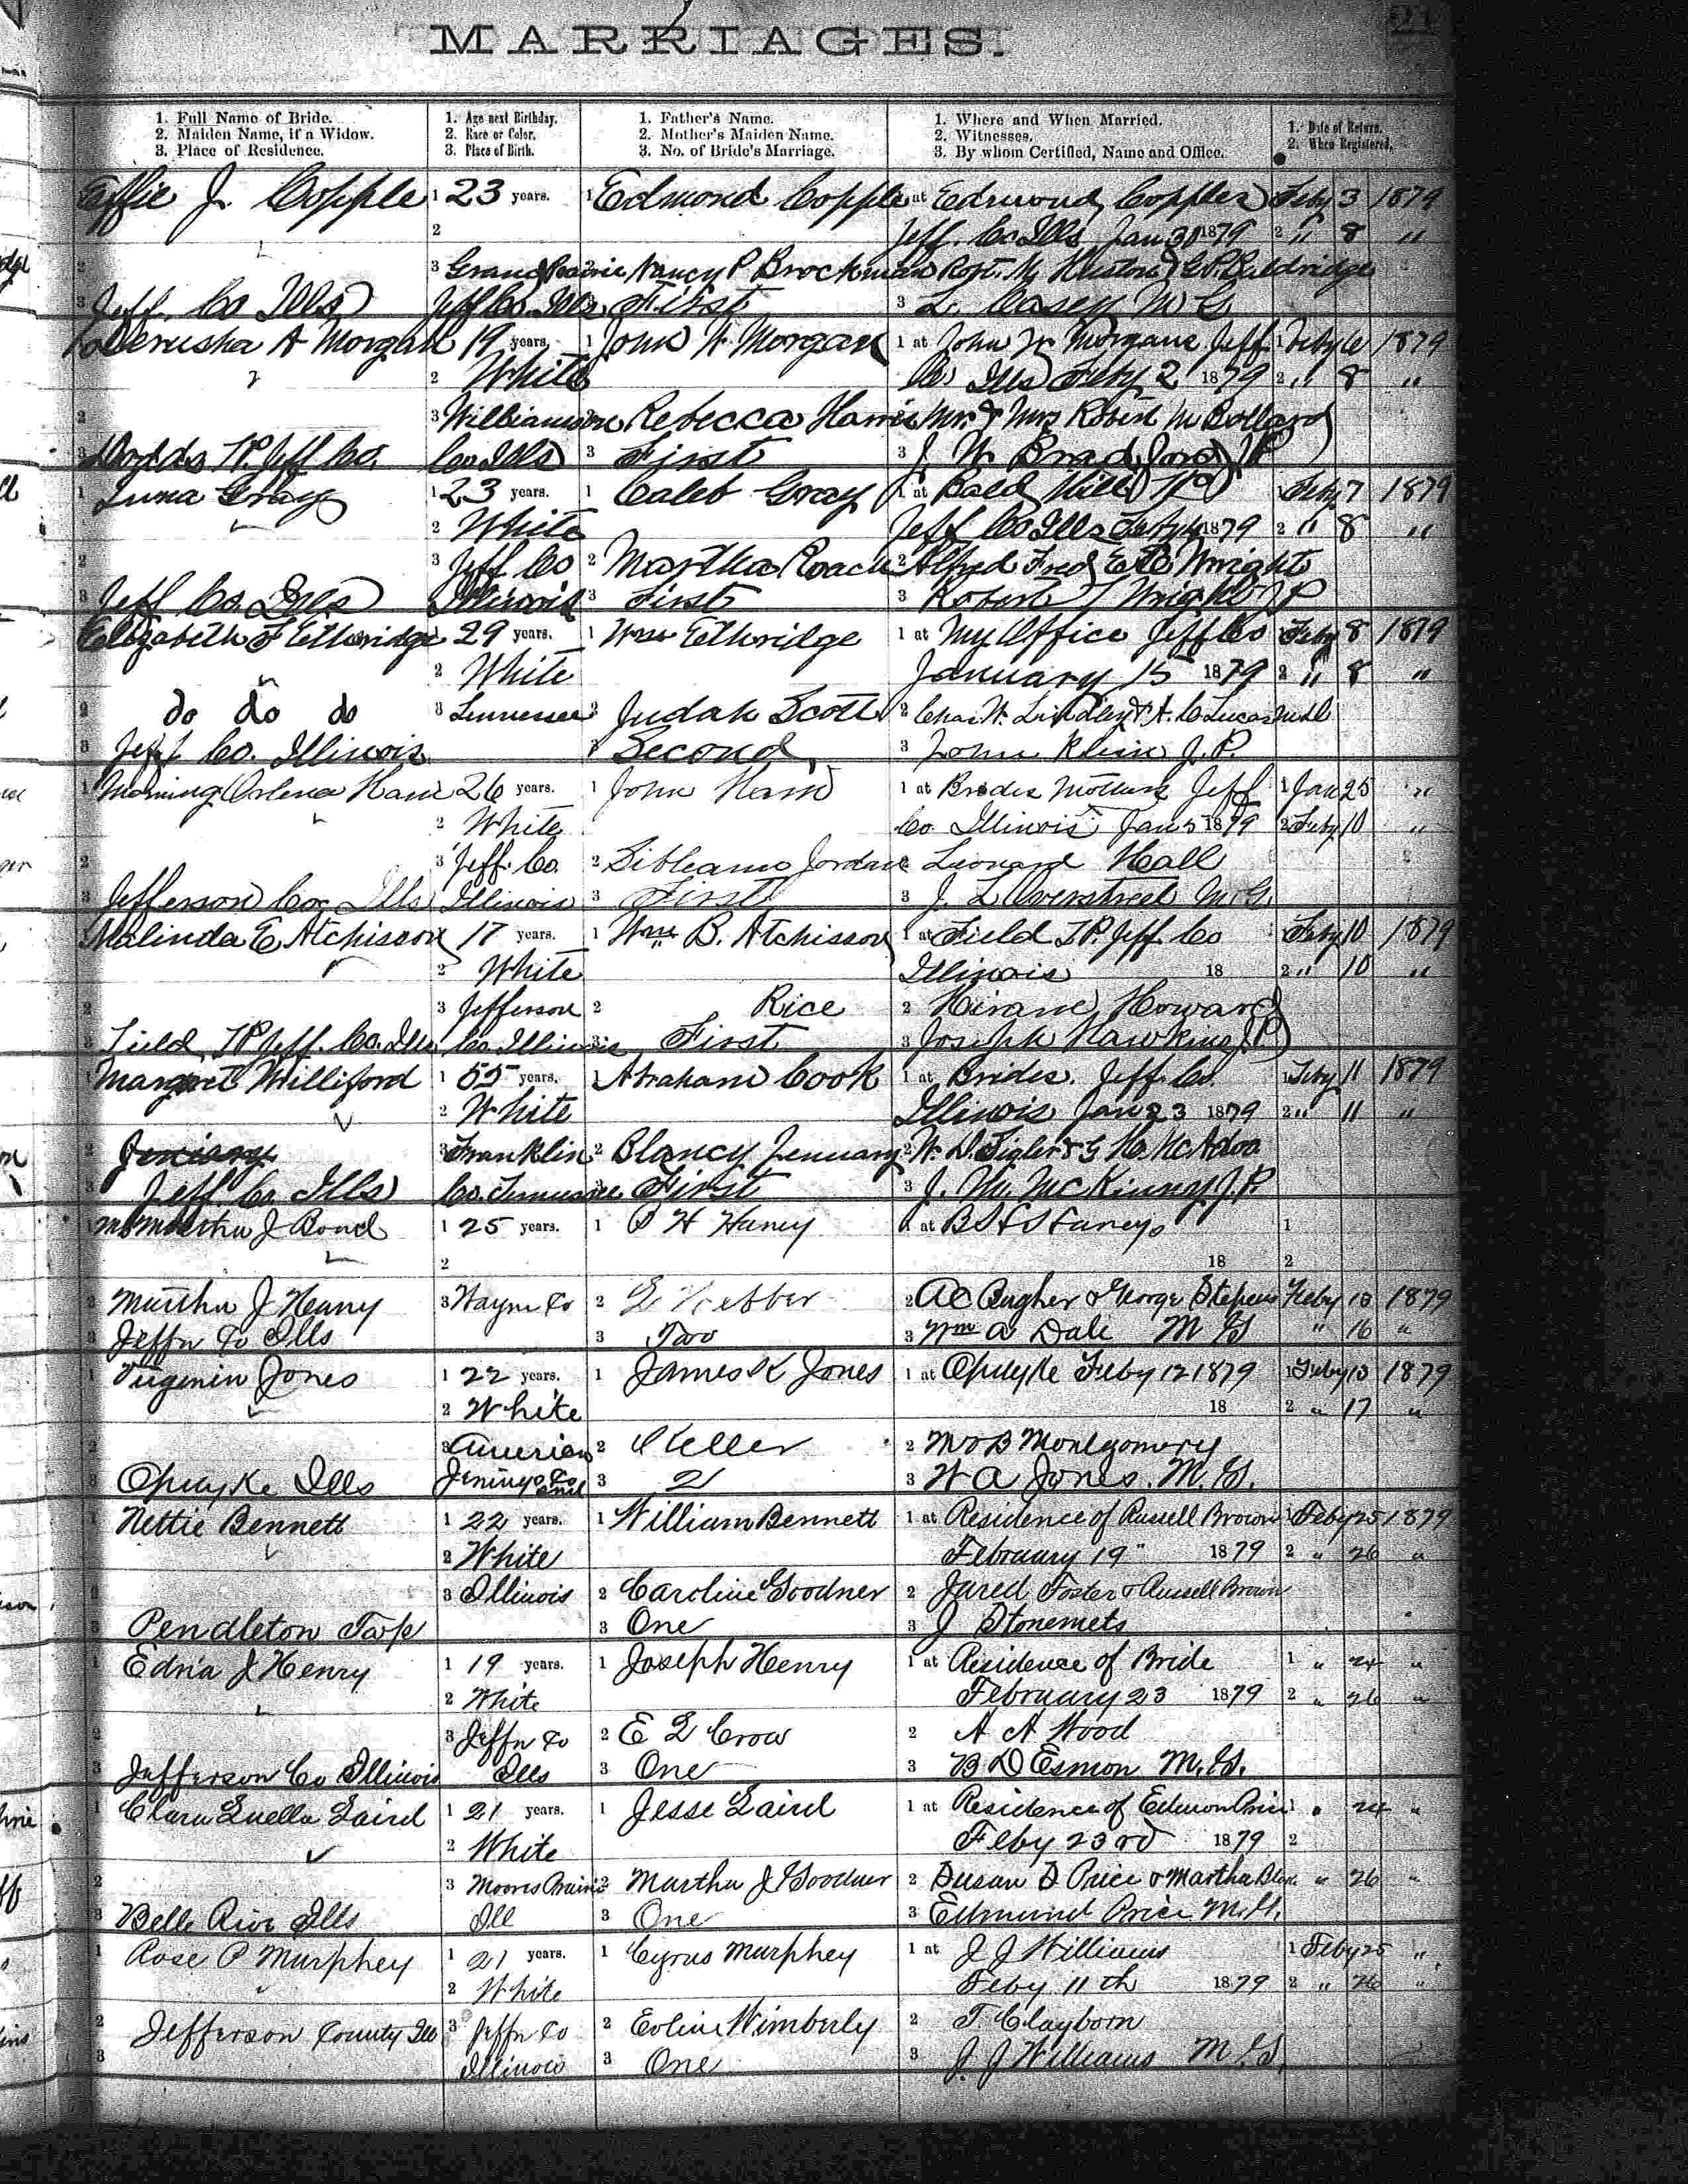 MARRIAGES.
1. Full Name of Bride. 1. Age next Birthday. 1. Father's Name. 1. Where and When Married. 1. Date of Return.
2. Maiden Name, if a Widow. 2. Race or Color. 2. Mother's Maiden Name. 2. Witnesses. 2. When Registered.
3. Place of Residence. 3. Place of Birth. 3. No. of Bride's Marriage. 3. By whom Certified, Name and Office.
Effie J. Copple 1 23 years. 1 Edmond Copple 1 at Edmond Copples Feby 3 1879
2 Jeff. Co Ills Jan 30 1879 2 " 8 "
2 3 Grand Prairie Nancy P Brockman Robt. M Huston & E.P. Baldridge
3 Jeff. Co Ills Jeff Co. Ills First 3 L. Casey M G
A Morgan 19 years. 1 John W. Morgan 1 at John W Morgans Jeff 1 Feby 6 1879
2 White Co Ills Feby 2 1879 2 " 8 "
2 3 Williamson Rebecca Harris Mr. & Mrs Robert M Bollard
3 Dodds TP. Jeff Co. Co Ills 3 First 3 J W Bradford JP
1 Luna Gray 1 23 years. 1 Caleb Gray 1 at Bald Hill TP 1 Feby 7 1879
2 White Jeff Co Ills Feby 1879 2 " 8 "
2 3 Jeff Co 2 Martha Roach 2 Alfred Fred Wright
3 Jeff Co Ills Illinois 3 First 3 Robert T Wright JP
Elizabeth F Etheridge 29 years. 1 Wm Ethridge 1 at My Office Jeff Co Feby 8 1879
2 White January 15 1879 2 " 8 "
2 do do do 3 Tennessee Judah Scott 2 Chas. W. Lindley & A. C Lucas
3 Jeff Co. Illinois Second 3 John Klein J.P.
1 Morning Orlena Ham 26 years. 1 John Ham 1 at Brides Mothers Jeff 1 Jan 25 "
2 White Co. Illinois Jan 5 1879 2 Feby 10 "
2 3 Jeff. Co. 2 Jordan Leonard Hall
3 Jefferson Co. Ills Illinois 3 First 3 J. L Overstreet M.G.
Malinda E Atchisson 17 years. 1 Wm B. Atchisson 1 at Field T.P. Jeff. Co Feby 10 1879
2 White Illinois 18 2 " 10 "
2 3 Jefferson 2 Rice 2 Hiram Howard
Field TP Jeff. Co. Ills Co. Illinois First 3 Joseph Hawkins J.P
Margret Williford 1 55 years. 1 Abraham Cook 1 at Brides. Jeff. Co. 1 Feby 11 1879
2 White Illinois Jan 23 1879 2 " 11 "
2 3 Franklin 2 Blancy Jenuary 2 W. D. Sigler & G H. McAdoo
3 Jeff Co Ills Co. Tennessee First 3 J. M. McKinny J.P.
Martha J Bond 1 25 years. 1 H Haney 1 at Haneys 1
2 18 2
2 Martha J Heany 3 Wayne Co 2 Webber 2 A C Bugher & George Stepens Feby 13 1879
3 Jeffn Co Ills 3 Two 3 Wm A Dale M G " 16 "
1 Virginia Jones 1 22 years. 1 James K Jones 1 at Opdyke Feby 12 1879 1 Feby 13 1879
2 White 18 2 " 17 "
2 3 American 2 Keller 2 M & B Montgomery
3 Opdyke Ills Jenings Co 3 2 3 W A Jones. M. G.
1 Nettie Bennett 1 22 years. 1 William Bennett 1 at Residence of Russell Brown 1 Feby 25 1879
2 White February 19" 1879 2 " 26 "
2 3 Illinois 2 Caroline Goodner 2 Jared Foster & Russell Brown
3 Pendleton Twp 3 One 3 J Stonemets
1 Edna J Henry 1 19 years. 1 Joseph Henry 1 at Residence of Bride 1 " 24 "
2 White February 23 1879 2 " 26 "
2 3 Jeffn Co 2 E L Crow 2 A A Wood
3 Jefferson Co Illinois Ills 3 One 3 B D Esmon M. G.
1 Clara Luella Laird 1 21 years. 1 Jesse Laird 1 at Residence of Edmon Price " 24 "
2 White Feby 23rd 1879 2
2 3 Moores Prairie 2 Martha J Goodner 2 Susan D Price & Martha " 26 "
3 Belle Rive Ills Ill 3 One 3 Edmund Price M. G.
1 Rose P Murphey 1 21 years. 1 Cyrus Murphey 1 at J J Williams 1 Feby 25 "
2 White Feby 11th 1879 2 " 26 "
2 Jefferson County Ills 3 Jeffn Co 2 Eoline Wimberly 2 T Clayborn
3 Illinois 3 One 3 J. J Williams M G